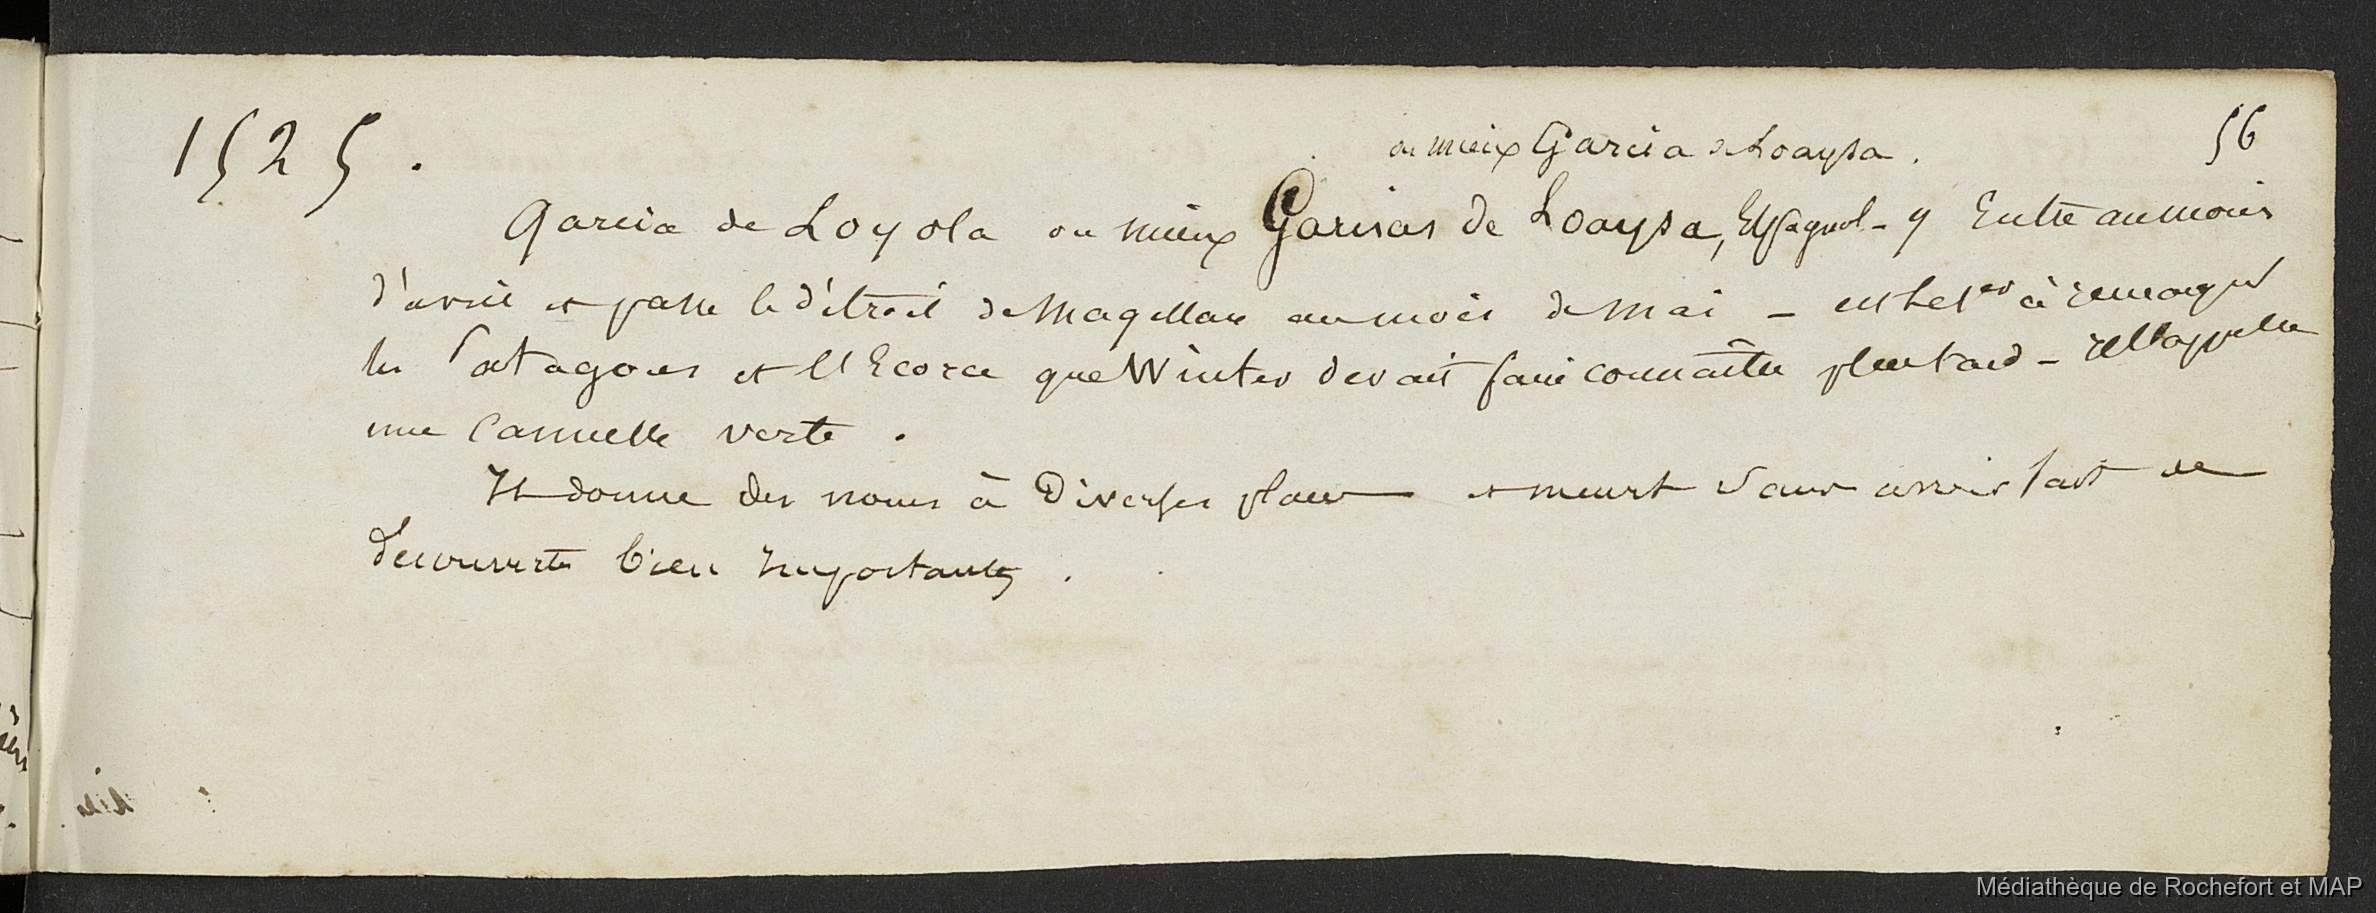 56
1525.
ou mieux Garcia de Loaysa.
Garcia de Loyola ou mieux Garcias de Loaysa, Espagnol - y Entre au mois
d'avril et passe le détroit de Magellan au mois de Mai - est le 1er à remarquer
les Patagons et l'Ecorce que Winter devait faire connaître plus tard - il l'appelle
une Cannelle verte.
Il donne des noms à Diverses places et meurt sans avoir fait de
Découvertes bien Importantes.
Médiathèque de Rochefort et MAP